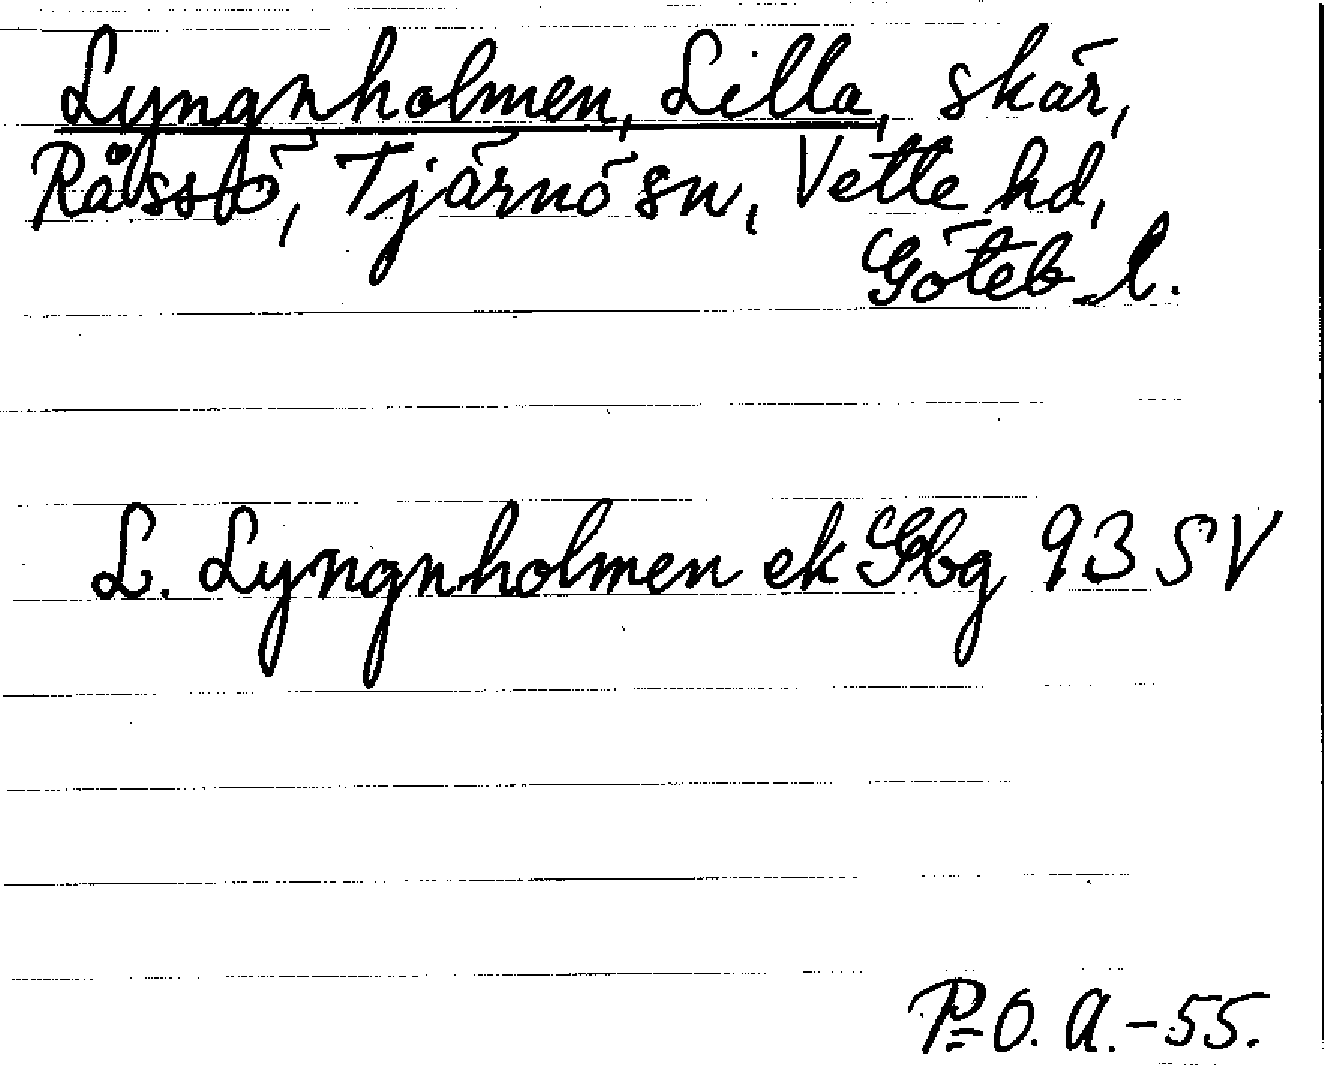 Lyngnholmen, Lilla, skär,
Råssö, Tjärnö sn, Vette hd,
Göteb. l.
L. Lyngnholmen ek Gbg 93 SV
P. O. A. - 55.